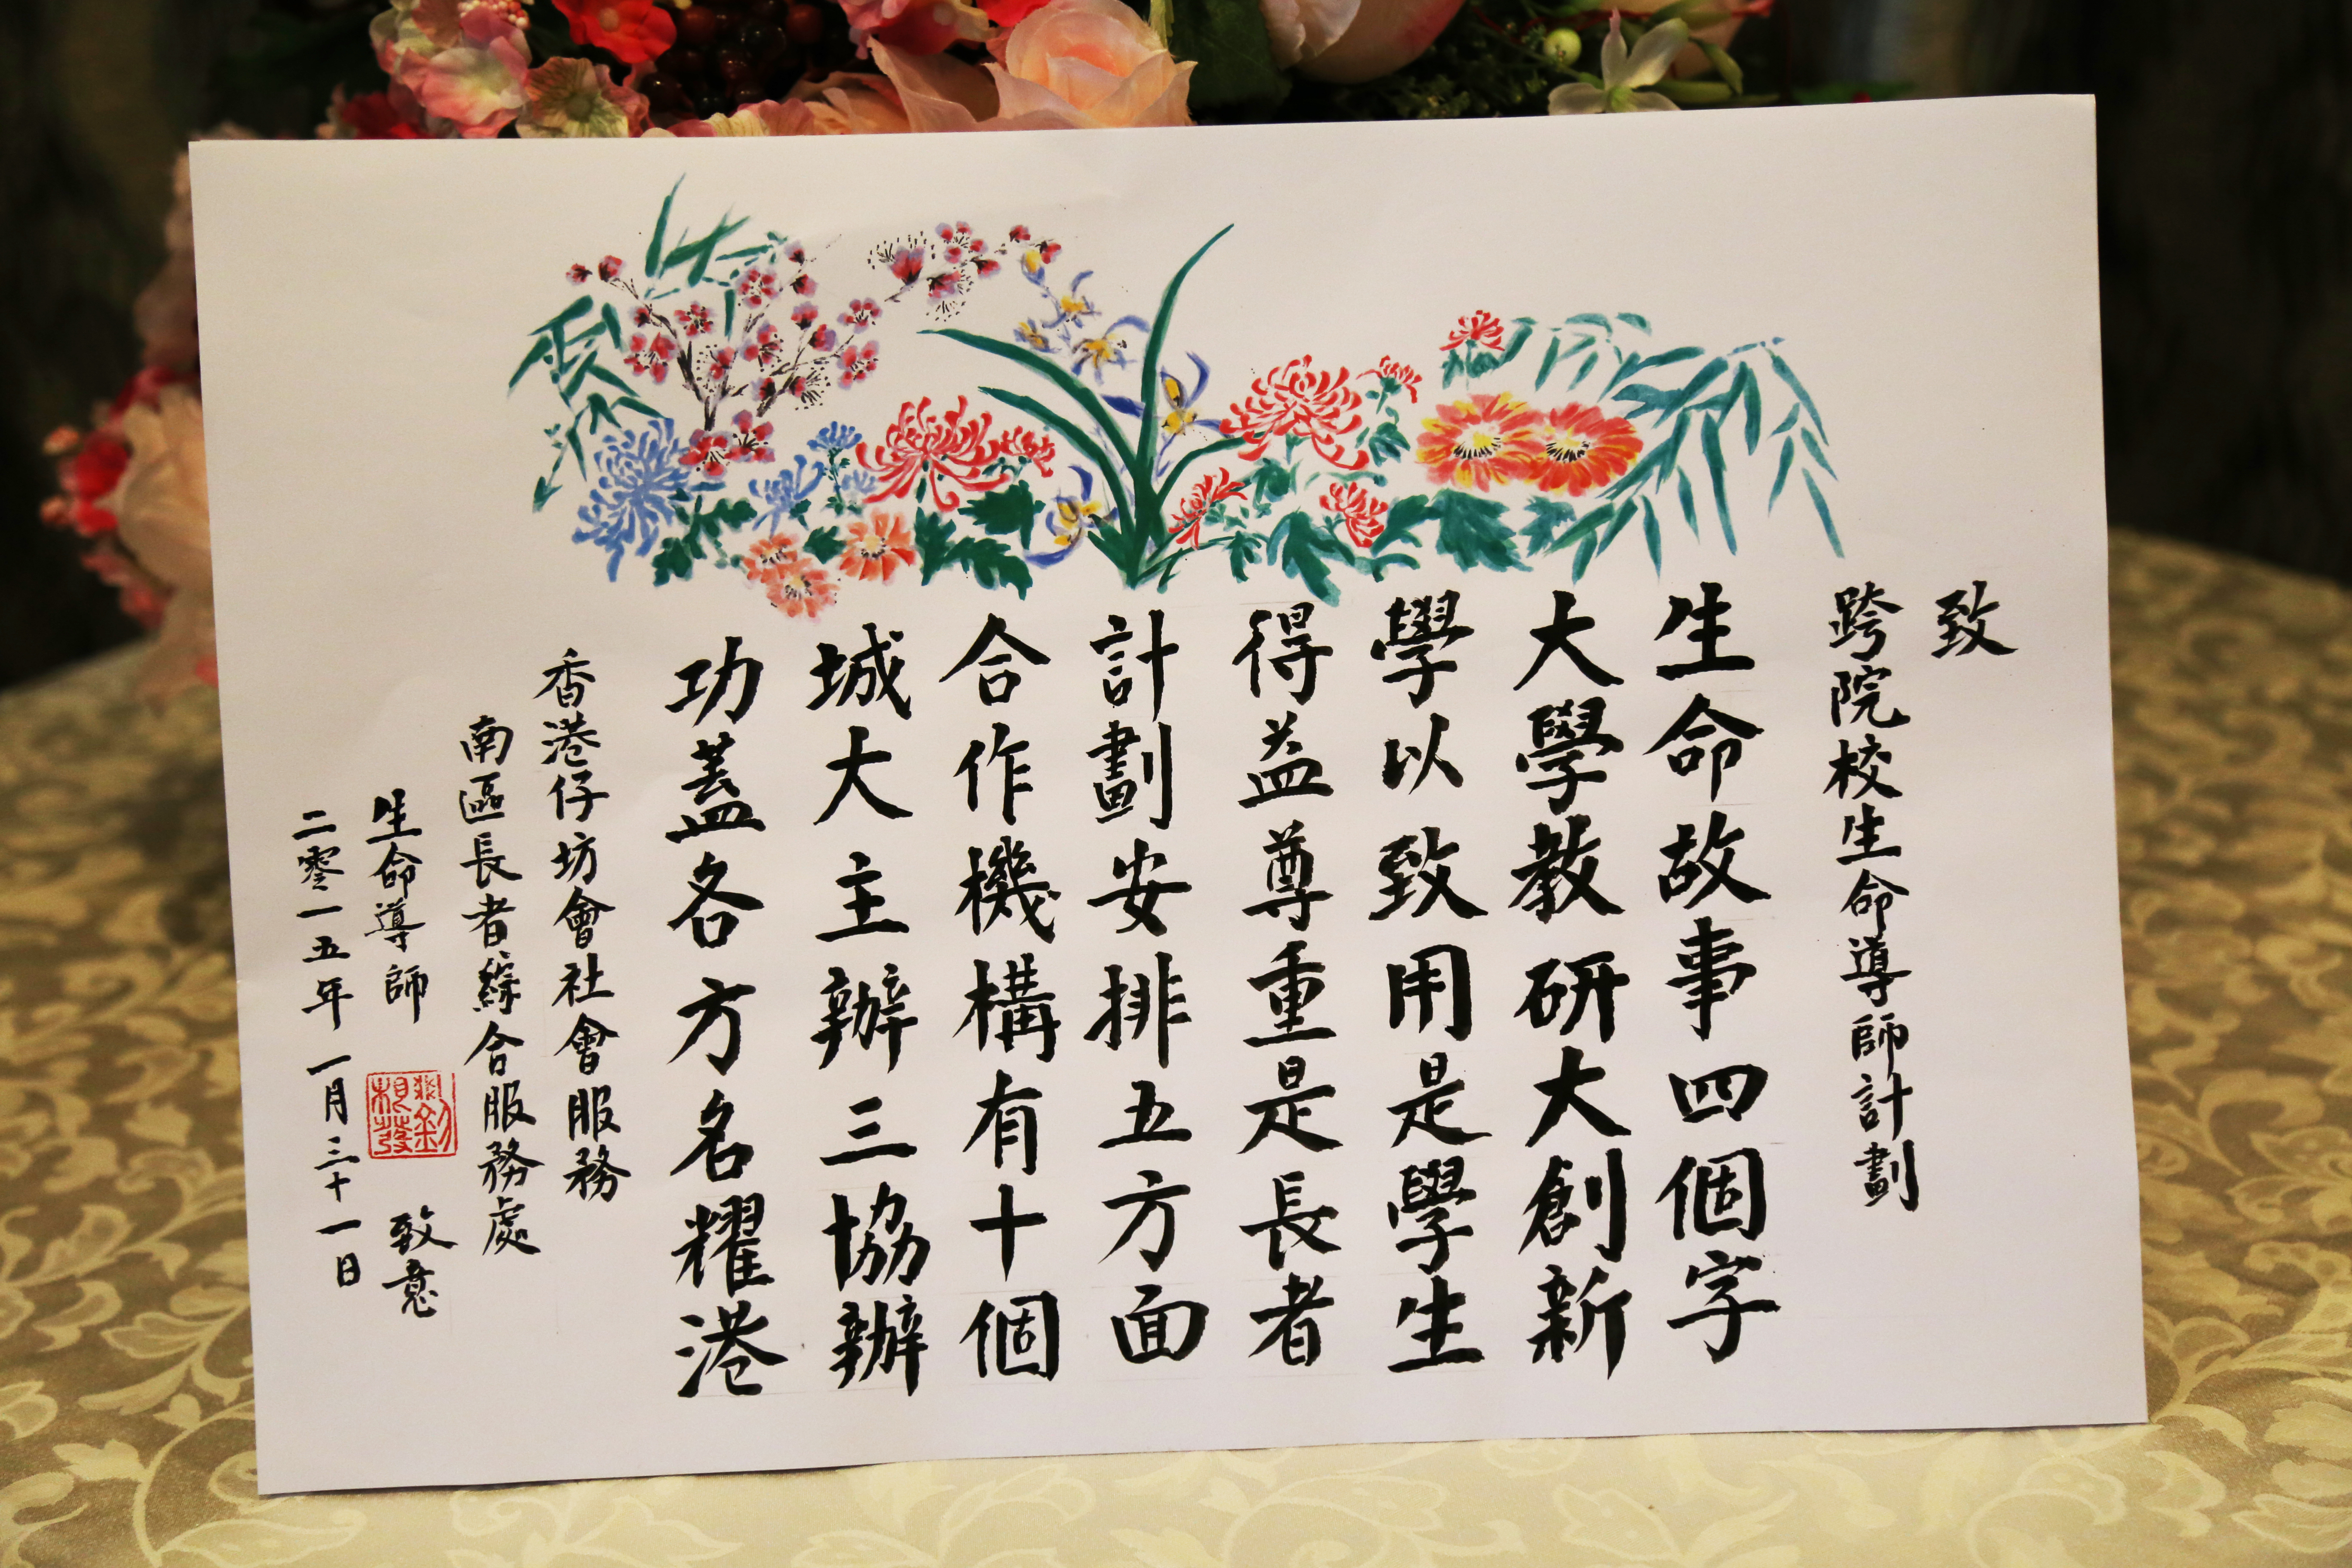 致
跨院校生命導師計劃
生命故事四個字
大學教研大創新
學以致用是學生
得益尊重是長者
計劃安排五方面
合作機構有十個
城大主辦三協辦
功蓋各方名耀港
香港仔坊會社會服務
南區長者綜合服務處
生命導師 致意
二零一五年一月三十一日